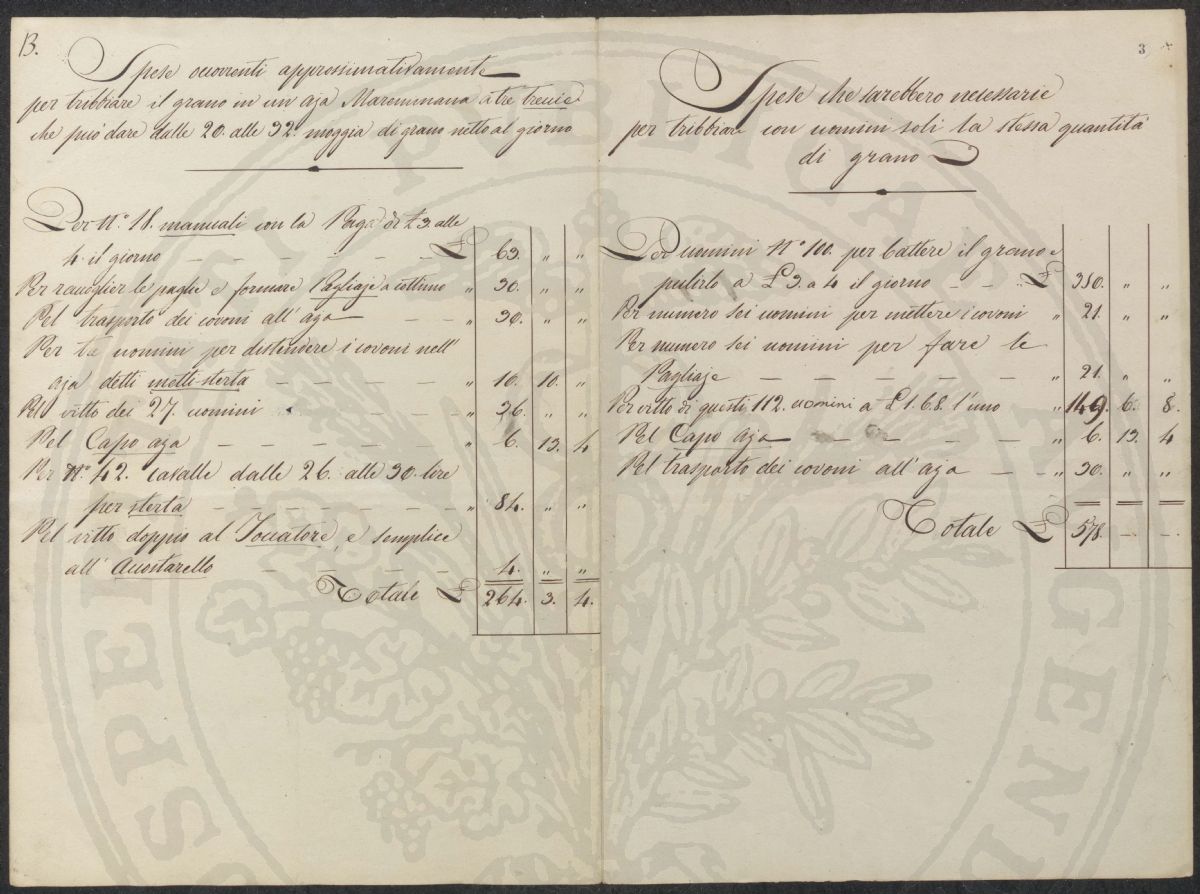 B.
Spese occorrenti approssimativamente
per tribbiare il grano in un aja Maremmana a tre treccie
che può dare dalle 20. alle 32. moggia di grano netto al giorno
Per N.° 18. manuali con la Paga di £ 3. alle
4. il giorno — — — — — — £ 63. „ „
Per raccoglier le paglie e formare Pagliaje a cottimo „ 30. „ „
Pel trasporto dei covoni all' aja — — „ 30. „ „
Per tre uomini per distendere i covoni nell'
aja detti metti-sterta — — — — — „ 10. 10. „
Pel vitto dei 27. uomini — — — — „ 36. „ „
Pel Capo aja — — — — — — „ 6. 13. 4
Per N.° 42. cavalle dalle 26. alle 30. lire
per sterta — — — — — — — „ 84. „ „
Pel vitto doppio al Toccatore, e semplice
all' Accostarello — — — — — „ 4. „ „
Totale £ 264. 3. 4.
3
Spese che sarebbero necessarie
per tribbiare con uomini soli la stessa quantità
di grano
Per uomini N.° 100. per battere il grano e
pulirlo a £ 3. a 4 il giorno — — £ 350. „ „
Per numero sei uomini per mettere i covoni „ 21. „ „
Per numero sei uomini per fare le
Pagliaje — — — — — — „ 21. „ „
Per vitto di questi 112. uomini a £ 1. 6. 8. l'uno „ 149. 6. 8.
Pel Capo Aja — — — — — „ 6. 13. 4
Pel trasporto dei covoni all' aja — — „ 30. „ „
Totale £ 578. — —.